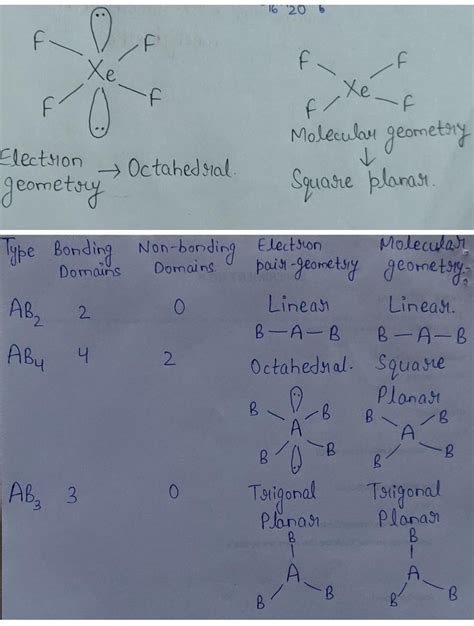 16 '20
F
F
Xe
F
F
F
F
Xe
F
F
Electron
geometry
→ Octahedral.
Molecular geometry
↓
Square planar.
Type Bonding Domains Non-bonding Domains Electron pair-geometry Molecular geometry
AB₂ 2 0 Linear Linear.
B—A—B B—A—B
AB₄ 4 2 Octahedral. Square Planar
B B
A
B B
B B
A
B B
AB₃ 3 0 Trigonal Planar Trigonal Planar
B
A
B B
B
A
B B